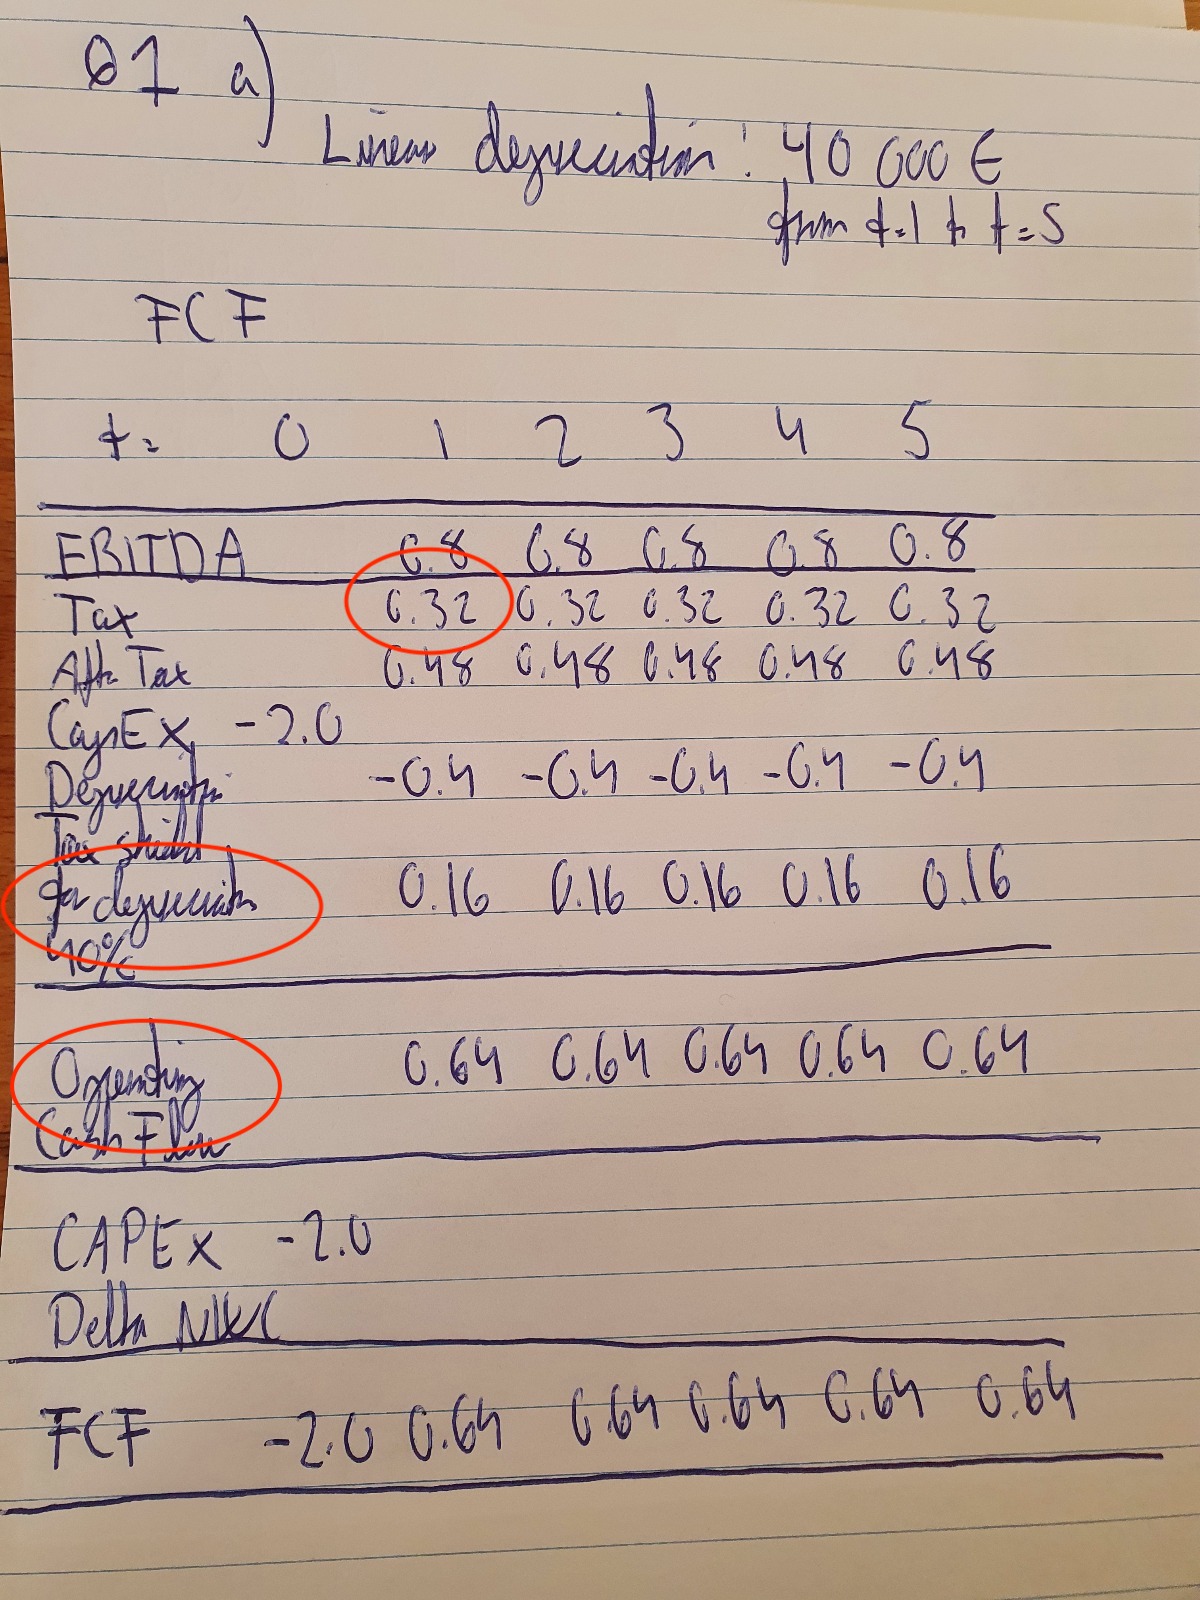 Q1 a)
Linear depreciation: 40 000 €
from t=1 to t=5
FCF
t= 0 1 2 3 4 5
EBITDA 0.8 0.8 0.8 0.8 0.8
Tax 0.32 0.32 0.32 0.32 0.32
After Tax 0.48 0.48 0.48 0.48 0.48
CapEx -2.0
Depreciation -0.4 -0.4 -0.4 -0.4 -0.4
Tax shield
for depreciation 0.16 0.16 0.16 0.16 0.16
40%
Operating 0.64 0.64 0.64 0.64 0.64
Cash Flow
CAPEx -2.0
Delta NWC
FCF -2.0 0.64 0.64 0.64 0.64 0.64